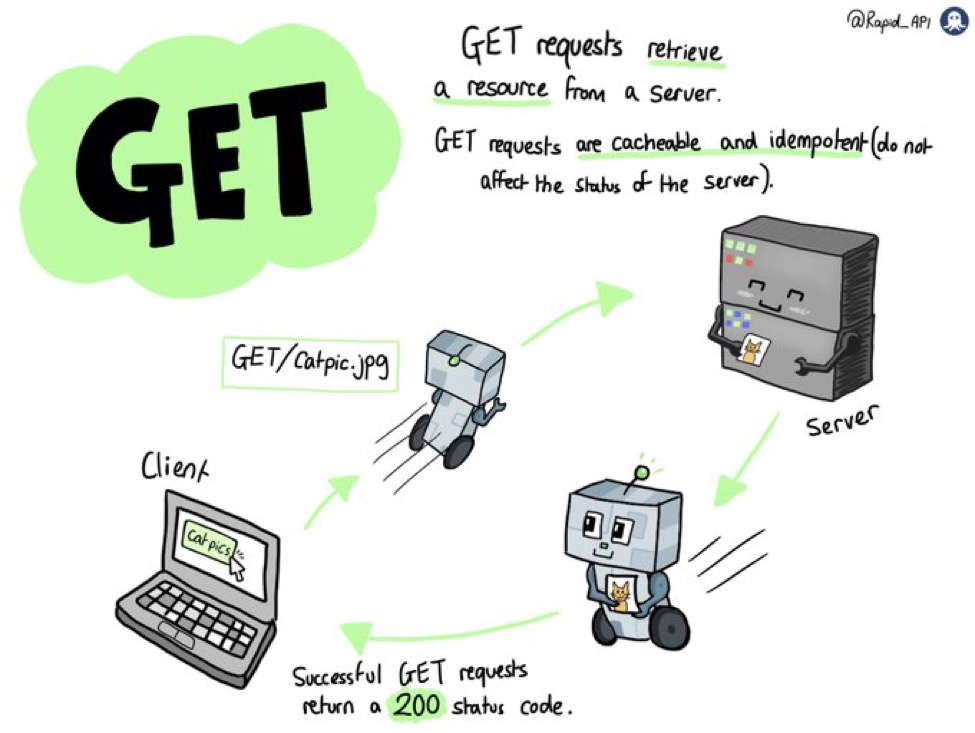 @Rapid_API
GET
GET requests retrieve
a resource from a server.
GET requests are cacheable and idempotent (do not
affect the status of the server).
GET/catpic.jpg
Server
Client
Cat pics
Successful GET requests
return a 200 status code.